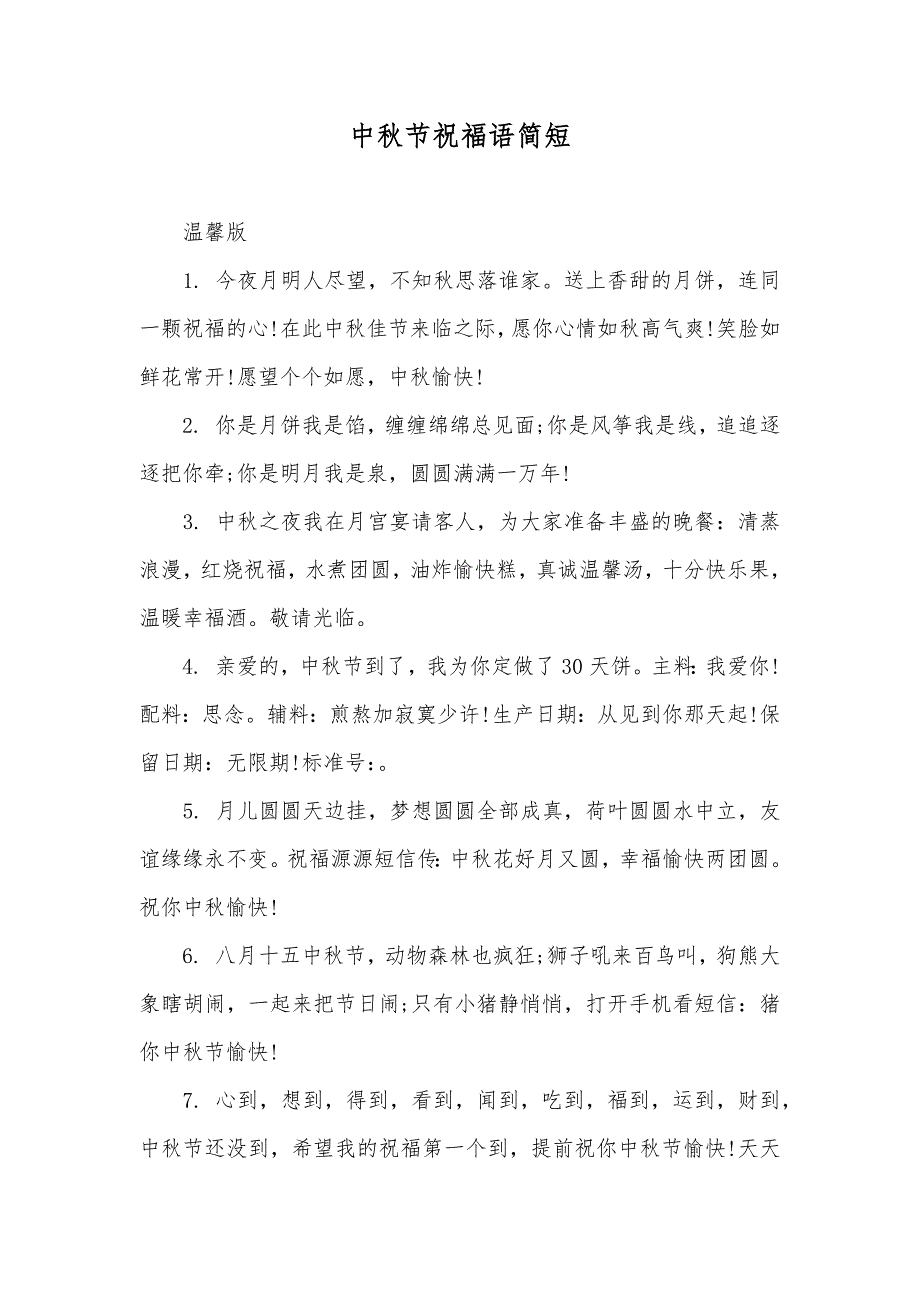 中秋节祝福语简短
温馨版
1. 今夜月明人尽望，不知秋思落谁家。送上香甜的月饼，连同
一颗祝福的心!在此中秋佳节来临之际，愿你心情如秋高气爽!笑脸如
鲜花常开!愿望个个如愿，中秋愉快!
2. 你是月饼我是馅，缠缠绵绵总见面;你是风筝我是线，追追逐
逐把你牵;你是明月我是泉，圆圆满满一万年!
3. 中秋之夜我在月宫宴请客人，为大家准备丰盛的晚餐：清蒸
浪漫，红烧祝福，水煮团圆，油炸愉快糕，真诚温馨汤，十分快乐果，
温暖幸福酒。敬请光临。
4. 亲爱的，中秋节到了，我为你定做了 30 天饼。主料：我爱你!
配料：思念。辅料：煎熬加寂寞少许!生产日期：从见到你那天起!保
留日期：无限期!标准号：。
5. 月儿圆圆天边挂，梦想圆圆全部成真，荷叶圆圆水中立，友
谊缘缘永不变。祝福源源短信传：中秋花好月又圆，幸福愉快两团圆。
祝你中秋愉快!
6. 八月十五中秋节，动物森林也疯狂;狮子吼来百鸟叫，狗熊大
象瞎胡闹，一起来把节日闹;只有小猪静悄悄，打开手机看短信：猪
你中秋节愉快!
7. 心到，想到，得到，看到，闻到，吃到，福到，运到，财到，
中秋节还没到，希望我的祝福第一个到，提前祝你中秋节愉快!天天